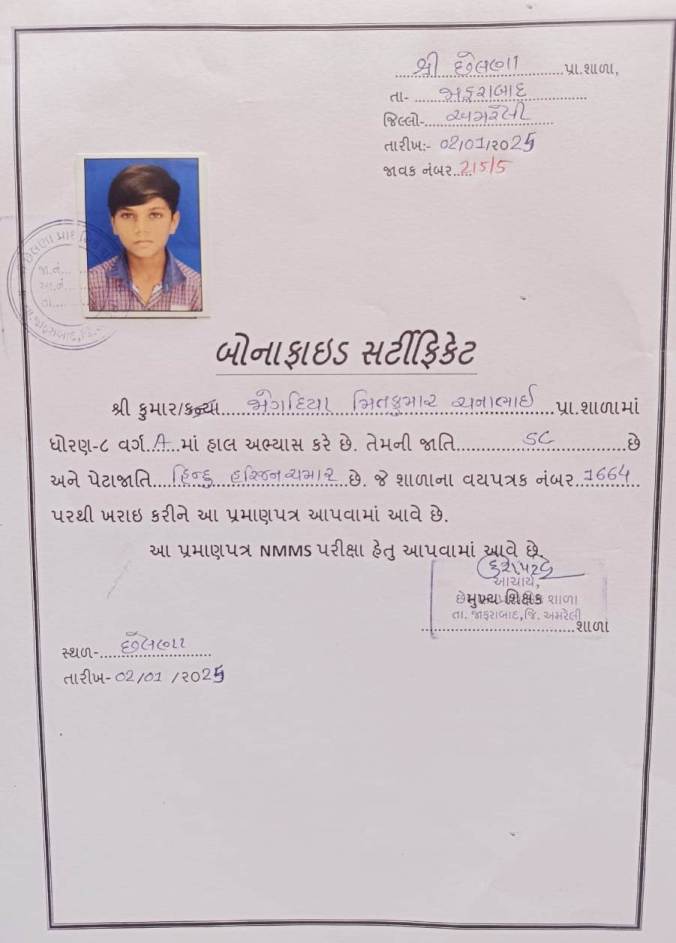 શ્રી છેલણા પ્રા.શાળા,
તા- જાફરાબાદ
જિલ્લો- અમરેલી
તારીખ:- 02/01/2025
જાવક નંબર..215/5
બોનાફાઇડ સર્ટીફિકેટ
શ્રી કુમાર/કન્યા મિતકુમાર પ્રા.શાળામાં
ધોરણ-૮ વર્ગ.A.માં હાલ અભ્યાસ કરે છે. તેમની જાતિ SC છે
અને પેટાજાતિ હિન્દુ ચમાર છે. જે શાળાના વયપત્રક નંબર 1664
પરથી ખરાઇ કરીને આ પ્રમાણપત્ર આપવામાં આવે છે.
આ પ્રમાણપત્ર NMMS પરીક્ષા હેતુ આપવામાં આવે છે.
આચાર્ય,
મુખ્ય શિક્ષક શાળા
તા. જાફરાબાદ, જિ. અમરેલી
શાળા
સ્થળ- છેલણા
તારીખ- 02/01/2025